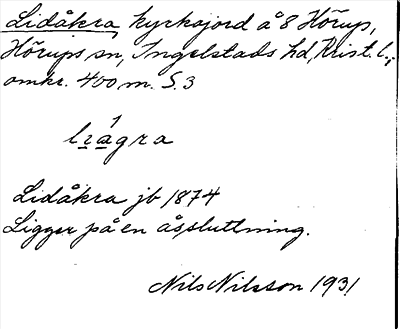 Lidåkra, kyrkojord å 8 Hörup,
Hörups sn, Ingelstads hd, Krist. l.,
omkr. 400 m. S. 3
lìágra
Lidåkra jb 1874
Ligger på en åssluttning.
Nils Nilsson 1931